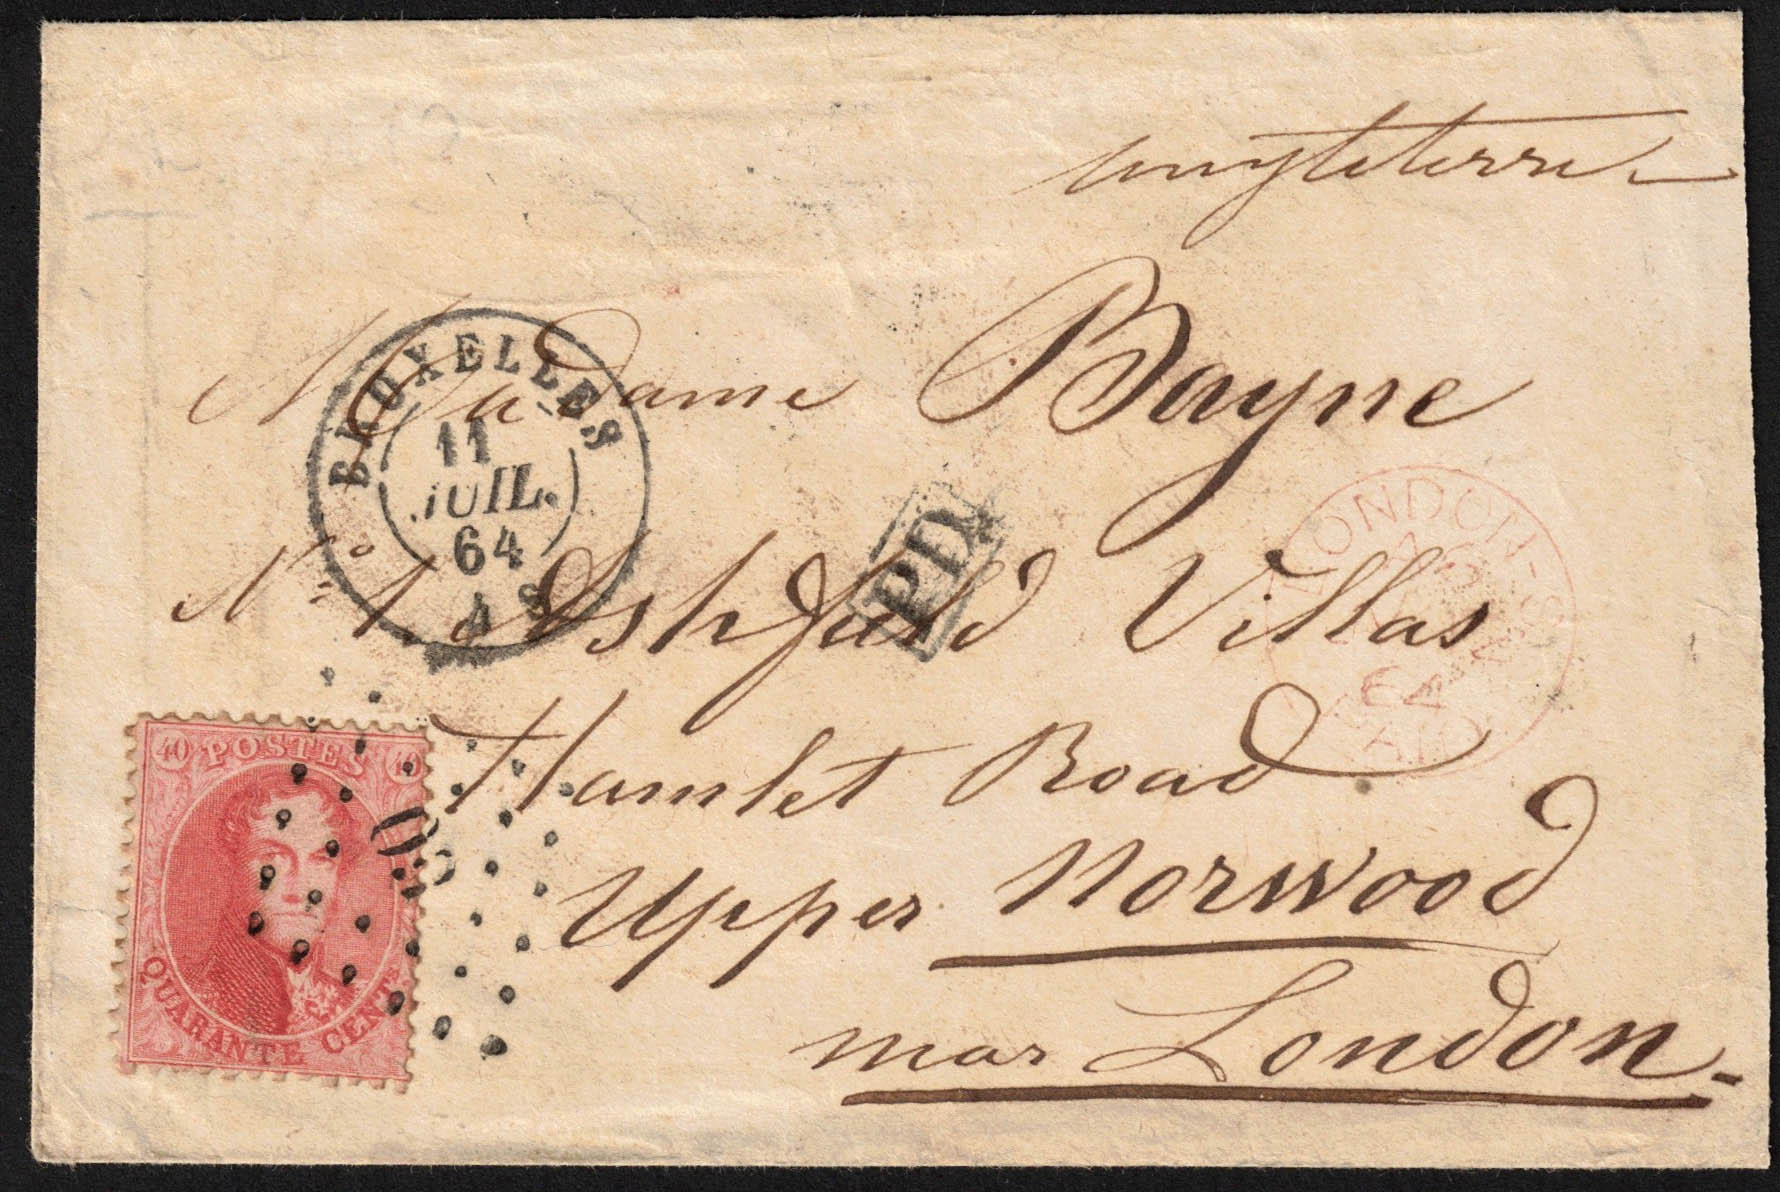 Angleterre
Madame Bayne
No. 1. Ashfield Villas
Hamlet Road
Upper Norwood
near London.
BRUXELLES
11
JUIL.
64
4 S
PD
LONDON-S
64
PAID
40 POSTES 40
QUARANTE CENTS